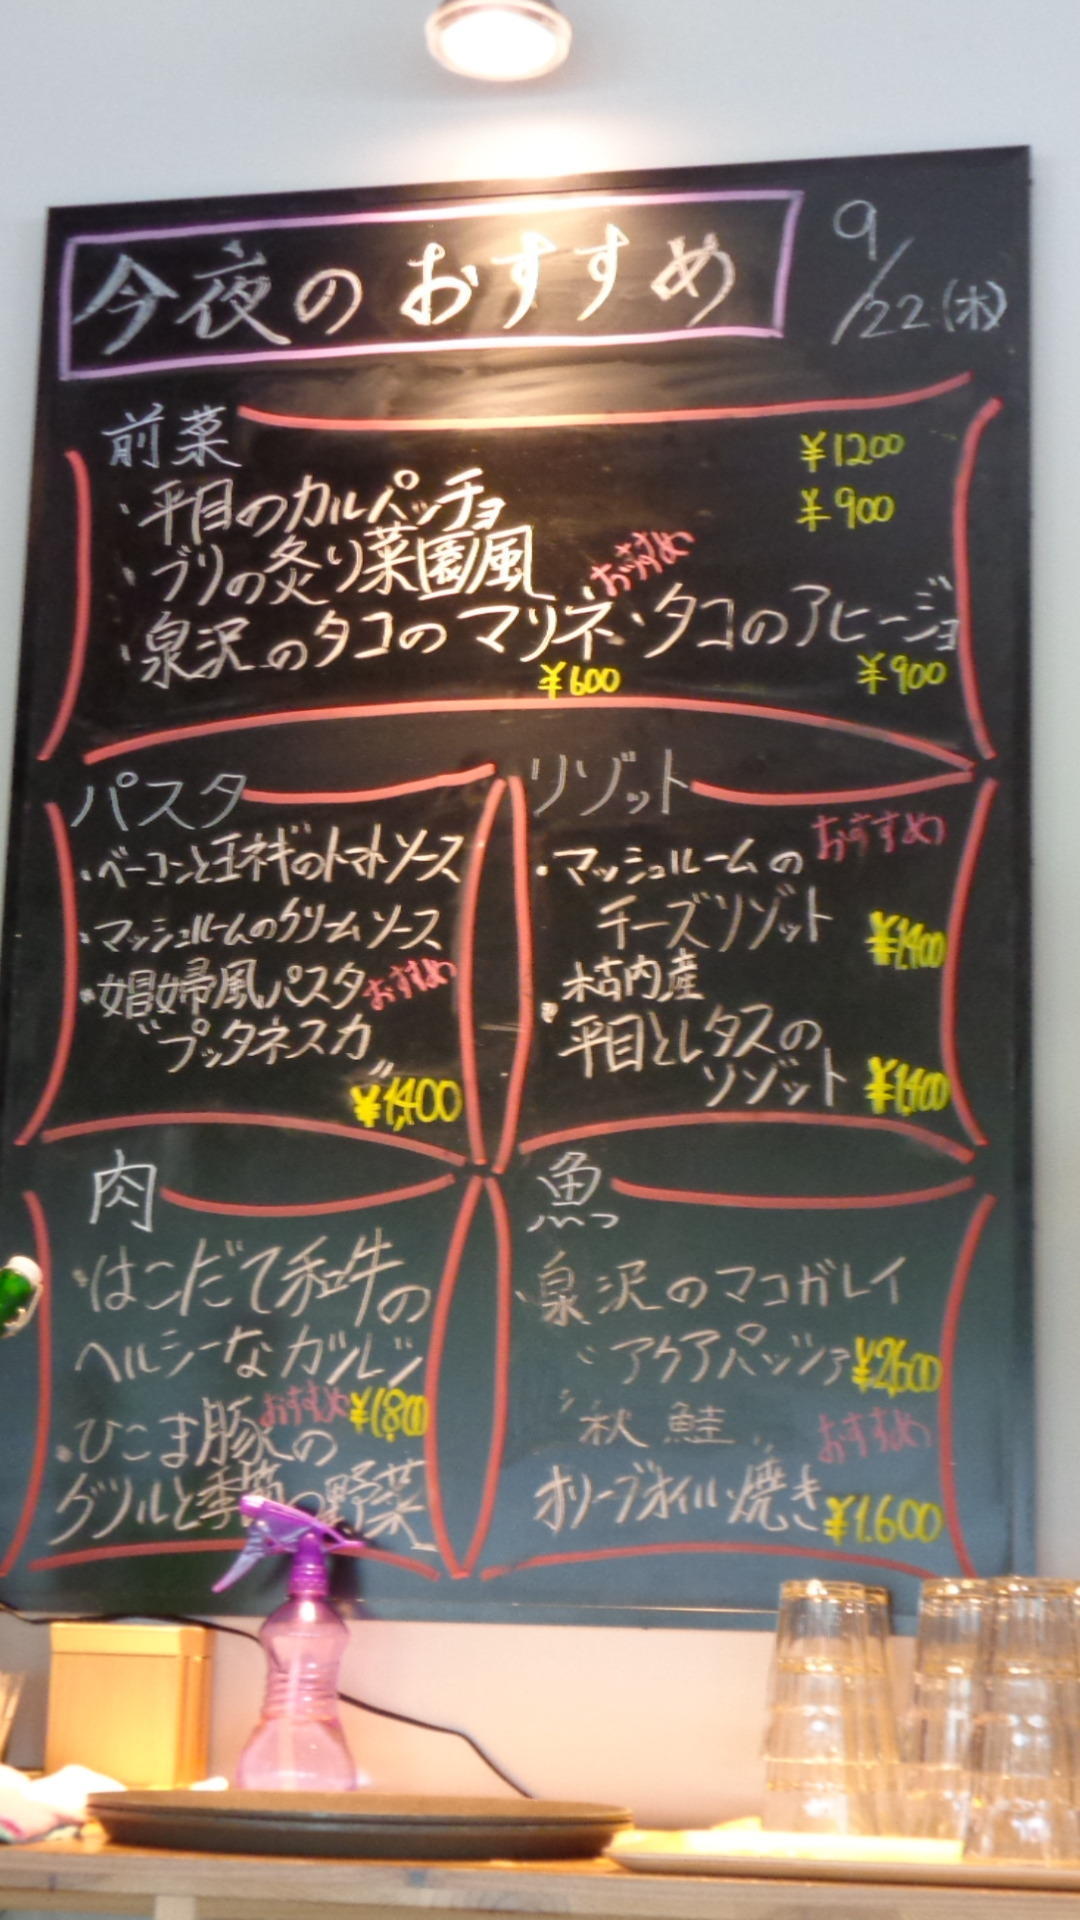 今夜のおすすめ
9/22(水)
前菜
・平目のカルパッチョ ¥1200
・ブリの炙り菜園風 ¥900
おすすめ
・泉沢のタコのマリネ・タコのアヒージョ
¥600 ¥900
パスタ
・ベーコンと玉ネギのトマトソース
・マッシュルームのクリームソース
・娼婦風パスタ おすすめ
“プッタネスカ”
¥1,400
リゾット
おすすめ
・マッシュルームの
チーズリゾット ¥1,400
・木古内産
平目とレタスの
リゾット ¥1,400
肉
・はこだて和牛の
ヘルシーなガツレツ
おすすめ ¥1,800
・ひこま豚の
グリルと季節の野菜
魚
・泉沢のマコガレイ
アクアパッツァ ¥2,600
・秋鮭 おすすめ
オリーブオイル焼き ¥1,600